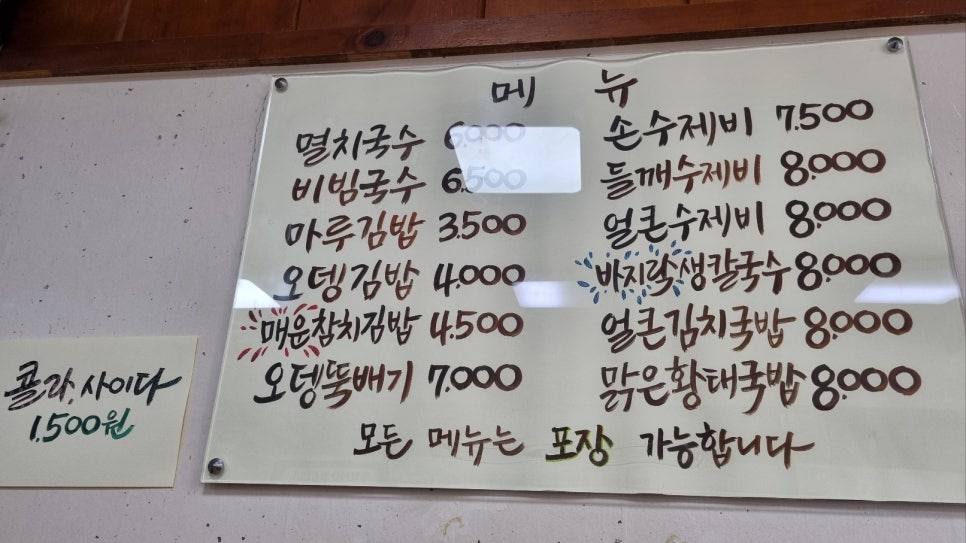 메 뉴
멸치국수 6.000
비빔국수 6.500
마루김밥 3.500
오뎅김밥 4.000
매운참치김밥 4.500
오뎅뚝배기 7.000
손수제비 7.500
들깨수제비 8.000
얼큰수제비 8.000
바지락생칼국수 8.000
얼큰김치국밥 8.000
맑은황태국밥 8.000
모든 메뉴는 포장 가능합니다
콜라, 사이다
1.500원